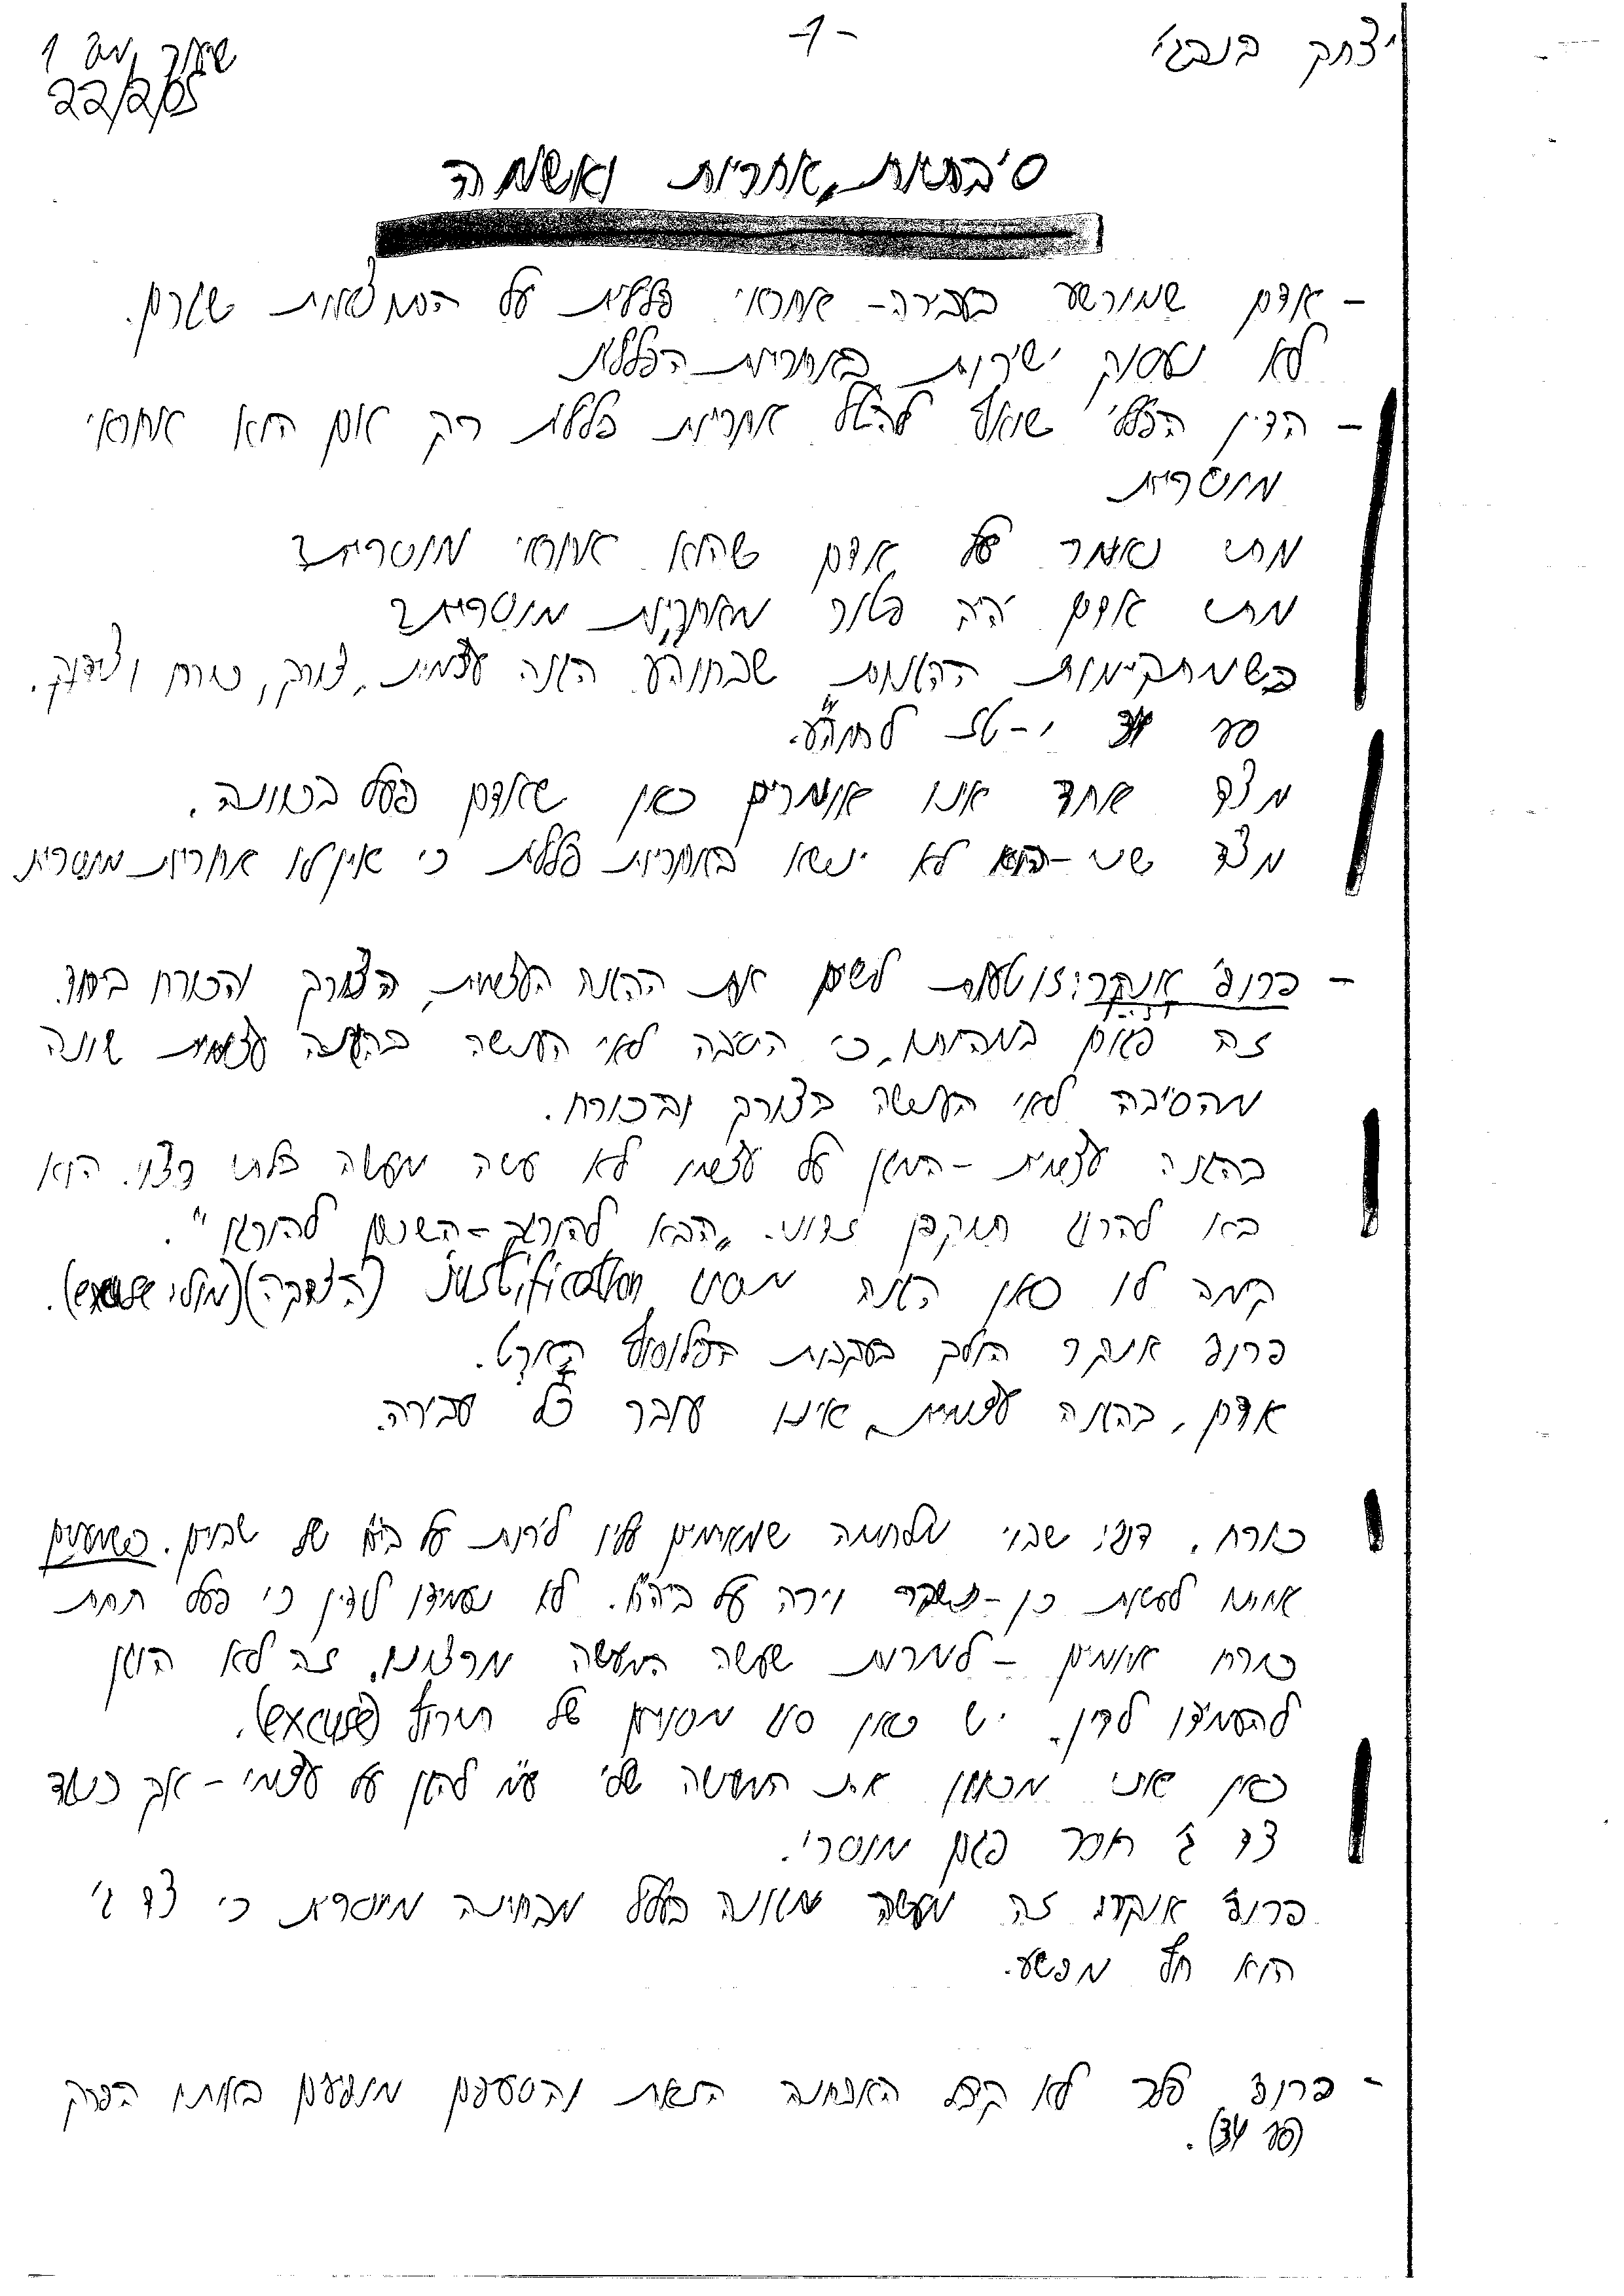 יצחק בנבג'י
-1-
שיעור מס 1
22/2/05
סיבתיות, אחריות ואשמה
- אדם שמורשע בעבירה - אחראי פלילית על התוצאות שגרם.
לא נעסוק ישירות באחריות הפלילית
- הדין הפלילי שואף להטיל אחריות פלילית רק אם הוא אחראי
מוסרית
מתי נאמר על אדם שהוא אחראי מוסרית?
מתי אדם יהיה פטור מאחריות מוסרית?
כשמתקיימות ההגנות שבחוהע הגנה עצמית, צורך, כורח וצידוק.
סע 34 י - טז לחוהע.
מצד אחד אנו אומרים כאן שאדם פעל בכוונה.
מצד שני - הוא לא ישא באחריות פלילית כי אין לו אחריות מוסרית
- פרופ' אנקר: זו טעות לשים את ההגנה העצמית, הצורך והכורח ביחד.
זה פגום במהותו, כי הסיבה לאי הענשה בהגנה עצמית שונה
מהסיבה לאי הענשה בצורך ובכורח.
בהגנה עצמית - המגן על עצמו לא עשה מעשה בלתי רצוי. הוא
בא להרוג תוקפן זדוני. "הבא להורגך - השכם להורגו".
קמה לו כאן הגנה מסוג justification (הצדקה) (מולי excuse).
פרופ' אנקר הולך בעקבות הפילוסוף הארט.
אדם, בהגנה עצמית, אינו עובר כל עבירה.
כורח. דוג': שבוי מלחמה שמאיימים עליו לירות על בי"ח של שבויים. כשמענים
אותו לעשות כן - נשבר וירה על ביה"ח. לא נעמידו לדין כי פעל תחת
כורח איומים - למרות שעשה המעשה מרצונו. זה לא הוגן
להעמידו לדין. יש כאן סוג מסויים של תירוץ (excuse).
כאן אני מכוון את המעשה שלי ע"מ להגן על עצמי - אך כנגד
צד ג' חסר פגם מוסרי.
פרופ' אנקר: זה מעשה מגונה בעליל מבחינה מוסרית כי צד ג'
הוא חף מפשע.
- פרופ' פלר לא קיבל האבחנה הזאת והסעיפים מופיעים באותו הפרק
(סע 34).